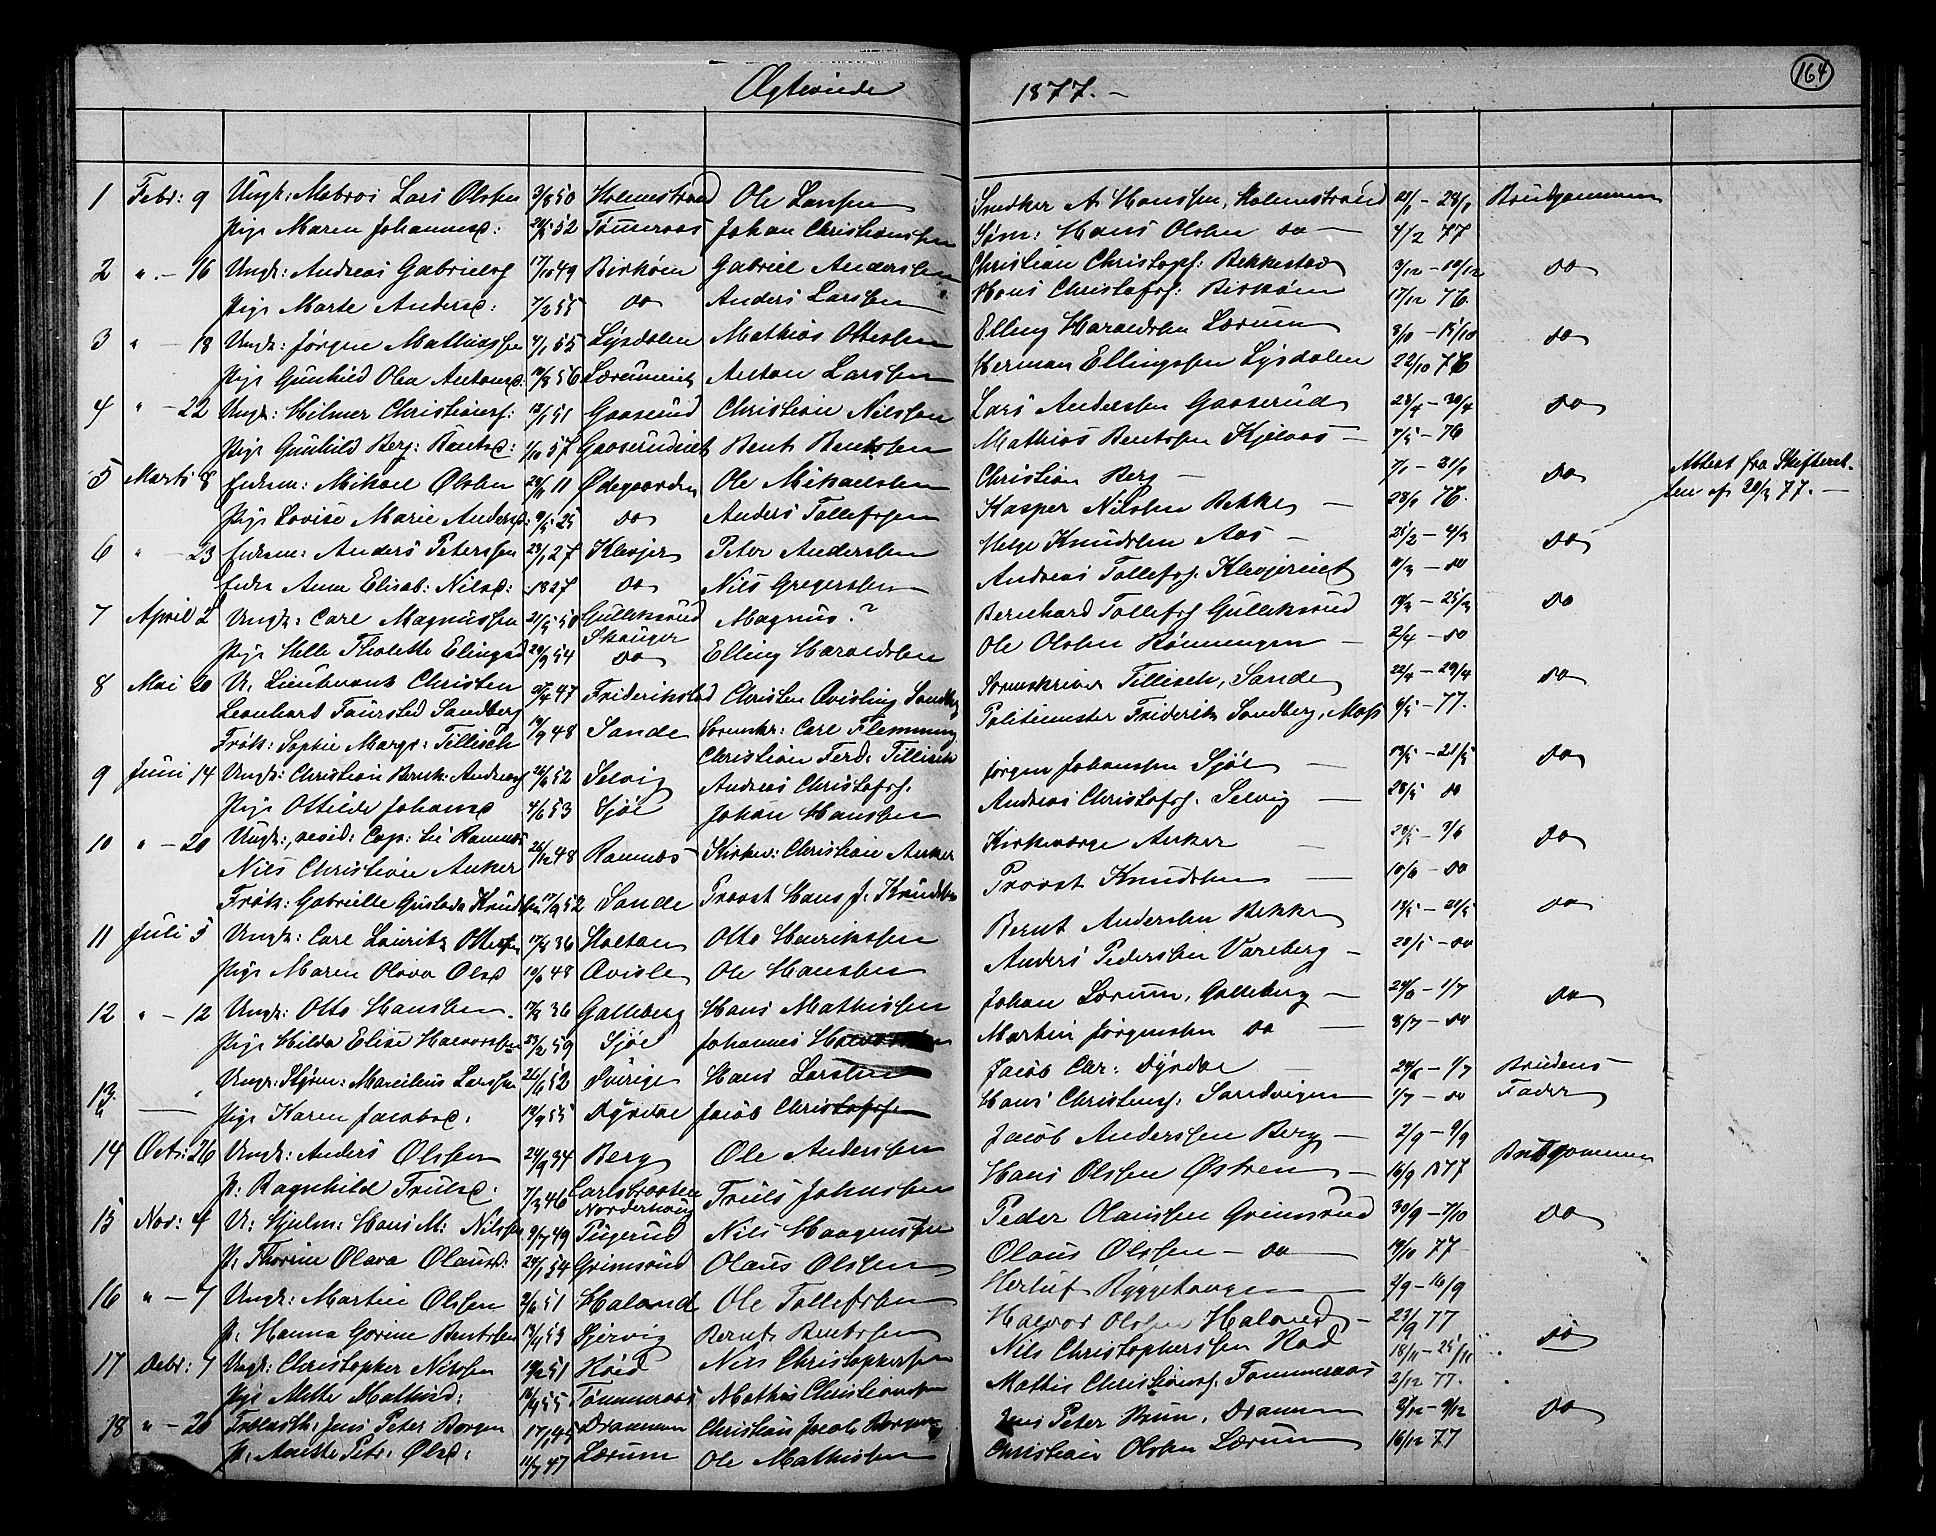 Ægteviede 1877. -
164
1 Febr: 9 Ungk: Matros Lars Olsen 50 Holmestrand Ole Larssen Snedker A Hanssen, Holmestrand Brudgommen
Pige Maren Johannesd: 52 Tømmeraas Johan Christianssen Søm: Hans Olsen do - 4/2 77
2 " - 16 Ungk: Andreas Gabrielsf 17/10 49 Birkøen Gabriel Anderssen Christian Christophs: Bekkestad 3/12 - 10/12 do
Pige Marte Andersd: 7/2 55 do Anders Larssen Hans Christofs: Birkøen 17/12 76.
3 " - 18 Ungk: Jørgen Mathiassen 4/1 55 Lysdalen Mathias Ottersen Elling Haraldsen Lærum 8/10 - 15/10 do
Pige Gunhild Olea Antonsd: 56 Lærumeiet Anton Larssen Herman Ellingssen Lysdalen 22/10 76
4 " - 22 Ungk: Hilmer Christiansf: 51 Gaaserud Christian Nilssen Lars Anderssen Gaaserud 23/4 - 30/4 do
Pige Gunhild Berg: Bentsd: 1/10 57 Gaaserudeiet Bent Bentssen Mathias Bentssen Kjelaas - 7/5 - 76
5 Marts 8 Enkem: Mikael Olsen 11 Ødegaarden Ole Mikaelsen Christian Berg - 7/1 - 21/1 do Attest fra Skifteret-
Pige Lovise Marie Andersd: 9/5 25 do Anders Tollefsen Kasper Nilssen Bekke 28/1 76. ten af 20/2 77. -
6 " - 23 Enkem: Anders Peterssen 23/1 27 Klevjer Peter Anderssen Helge Knudsen Aas - 25/2 - 4/3 do
Enke Anne Elisab: Nilsd: 1827 do Nils Gregerssen Andreas Tollefs: Klevjereiet 11/3 - do
7 April 2 Ungk: Carl Magnussen 21/5 50 Gulliksrud Skouger Magnus? Bernhard Tollefs: Gulliksrud 18/3 - 25/3 do
Pige Helle Tholette Elingsd 20/9 54 do Elling Haraldsen Ole Olsen Rønningen - 2/4 - do
8 Mai 20 U. Lieutnant Christen 47 Frideriksstad Christen Qvisling Sandberg Sorenskriver Tillisch, Sande 22/4 - 29/4 do
Leonhart Faursted Sandberg Politimester Friderik Sandberg, Moss 6/5 - 77.
Frøk: Sophie Margr: Tillisch 19/9 48 Sande Sorenskr: Carl Flemming
Christian Ferd: Tillisch
9 Juni 14 Ungk: Christian Bernh: Andreasf 52 Selvig Andreas Christofs: Jørgen Johanssen Sjøl 13/5 - 21/5 do
Pige Ottilde Johansd 4/6 53 Sjøl Johan Hanssen Andreas Christofs: Selvig - 28/5 do
10 " - 20 Ungk:, resid: Cap: til Ramnæs
Nils Christian Anker 26/12 48 Ramnæs Kirkev: Christian Anker Kirkeværge Anker - 3/6 do
Frøk: Gabrielle Gustava Knudsen 17/9 52 Sande Provst Hans J: Knudsen Provst Knudsen - 10/6 - do
11 Juli 5 Ungk: Carl Lauritz Ottersen 36 Holtan Otto Henrikssen Bernt Anderssen Bekke 13/5 - 21/5 do
Pige Maren Olava Olsd 10/6 48 Qvisle Ole Hanssen Anders Pederssen Vareberg - 28/5 - do
12 " - 12 Ungk: Otto Hanssen. 36 Galleberg Hans Mathissen Johan Lærum, Galleberg - 24/6 - 1/7 do
Pige Hilda Elise Halvorssen 23/2 59 Sjøl Johannes Halvorssen Martin Jørgenssen do - 8/7 - do
13 Ungk: Styrm: Marcelius Larssen 26/6 52 Sverige Hans Larssen Jacob Chr: Dyrdal - 24/6 - 1/7 Brudens
Pige Karen Jacobsd: 12/9 55 Dyrdal Jacob Christofssen Hans Christens: Sandvigen 1/7 - do Fader
14 Oct: 26 Ungk: Anders Olssen 24/9 34 Berg Ole Anderssen Jacob Anderssen Berg - 2/9 - 9/9 Brudgommen
P: Ragnhild Trulsd: 7/3 46 Carlsbraaten Norderhoug Truls Johnssen Hans Olssen Østren - 16/9 1877
15 Nov: 4 U: Hjulm: Hans M: Nilssen 9/7 49 Pugerud Nils Haagenssen Peder Olaussen Grimsrud 30/9 - 7/10 do
P: Thorine Olava Olausd: 24/1 54 Grimsrud Olaus Olssen Olaus Olssen - do - 14/10 77
16 " - 7 Ungk: Martin Olssen 2/6 51 Haland Ole Tollefsen Herluf Ryggehaugen 2/9 - 16/9
P: Hanna Gorine Bentssen 53 Bernt Bentssen Halvor Olssen Haland - 23/9 77 do
17 Decbr: 7 Ungk: Christopher Nilssen 51 Nils Christopherssen Nils Christopherssen Rød 18/11 - 25/11
Pige Mette Mathisd: 55 Tømmeraas Mathis Christianssen Mattis Christians: Tømmeraas 2/12 77.
18 " - 20 Jens Peter Borgen 17/1 45 Drammen Christian Jacob Borgen Jens Peter Brun, Drammen 2/12 - 9/12 do
P: Anette Petr: Olsd: 47 Lærum Ole Mathissen Christian Olssen Lærum 16/12 77